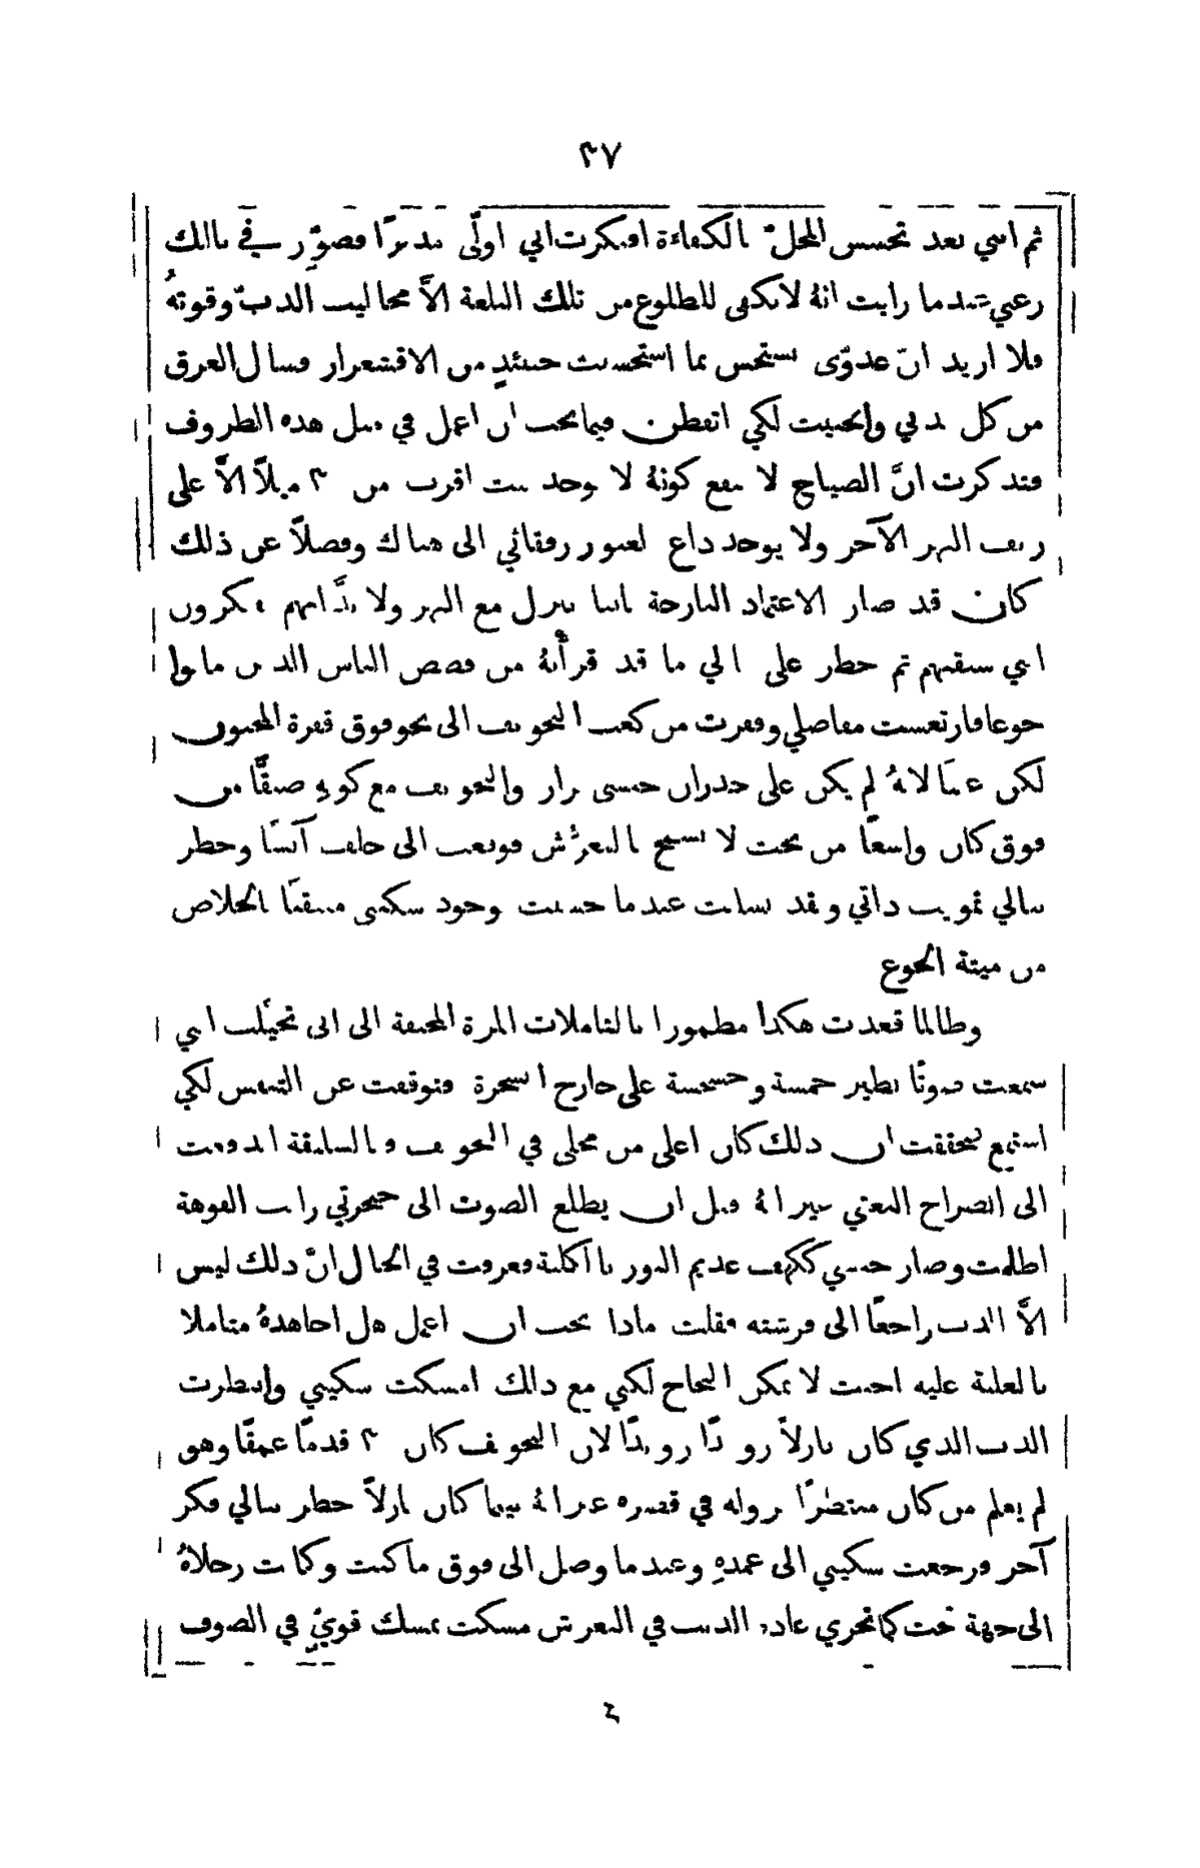 ٢٧
ثم انني بعد تجسس المحل بالكفاءة افتكرت اني اولى مدبرًا فصوّر في بالك
رعبي عندما رايت انهُ لا يكفي للطلوع من تلك البلعة الاَّ مخاليب الدبّ وقوتهُ
فلا اريد انّ عدوّي يستحس بما استحسنت حينئذٍ من الاقشعرار وسال العرق
من كل بدني وانحنيت لكي اتفطن فيما يجب ان اعمل في مثل هذه الظروف
فتذكرت انَّ الصياح لا ينفع كونهُ لا يوجد بيت اقرب من ٢ ميلاً الاَّ على
ريف النهر الآخر ولا يوجد داع لعبور رفقائي الى هناك وفضلاً عن ذلك
كان قد صار الاعتماد البارحة باننا ننزل مع النهر ولا بدَّ انهم يفكرون
انني سبقتهم ثم خطر على بالي ما قد قرأتهُ من قصص الناس الذين ماتوا
جوعا فارتعست مفاصلي وقفزت من كعب التجويف الى نحو فوق قفزة المجنون
لكن عبثًا لانهُ لم يكن على جدران حبسي برار والتجويف مع كونهِ ضيقًّا من
فوق كان واسعًا من تحت لا يسمح بالتعرُّش فوقعت الى خلف آئسًا وخطر
ببالي تمويت ذاتي وقد تسليت عندما حسيت وجود سكيني متيقنًا الخلاص
من ميتة الجوع
وطالما قعدت هكذا مطمورا بالتاملات المرة المخيفة الى اني تخيَّلت انني
سمعت صوتًا نظير خمسة وخشمسة على خارج الشجرة فتوقفت عن التنفس لكي
استمع فتحققت ان ذلك كان اعلى من محلي في التجويف وبالسليقة اندفعت
الى الصراخ المعني غير انهُ قبل ان يطلع الصوت الى حنجرتي رايت الفوهة
اظلمت وصار حبسي ككهف عديم النور بالكلية فعرفت في الحال انّ ذلك ليس
الاَّ الدب راجعًا الى فرشته فقلت ماذا يجب ان اعمل هل اجاهدهُ متاملا
بالغلبة عليه اجبت لا يمكن النجاح لكني مع ذالك امسكت سكيني وانتظرت
الدب الذي كان نازلاً رويدًا رويدًا لان التجويف كان ٢ قدمًا عمقًا وهو
لم يعلم من كان منتظرًا نزوله في قصره غير انهُ بينما كان نازلاً خطر ببالي فكر
آخر فرجعت سكيني الى غمدهِ وعندما وصل الى فوق ما كنت وكانت رجلاهُ
الى جهة تحت كما تجري عادة الدبب في التعرش مسكت بمسك قويٍّ في الصوف
٤